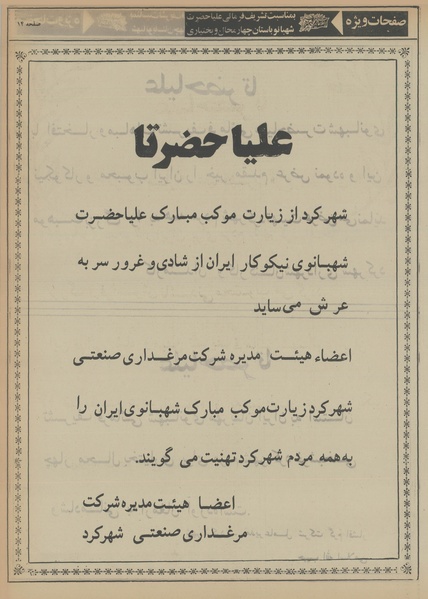 صفحات ویژه
بمناسبت تشریف فرمائی علیاحضرت
شهبانو باستان چهارمحال و بختیاری
صفحه ۱۴
علیاحضرتا
شهرکرد از زیارت موکب مبارک علیاحضرت
شهبانوی نیکوکار ایران از شادی و غرور سر به
عرش می ساید
اعضاء هیئت مدیره شرکت مرغداری صنعتی
شهرکرد زیارت موکب مبارک شهبانوی ایران را
به همه مردم شهرکرد تهنیت می گویند.
اعضا هیئت مدیره شرکت
مرغداری صنعتی شهرکرد